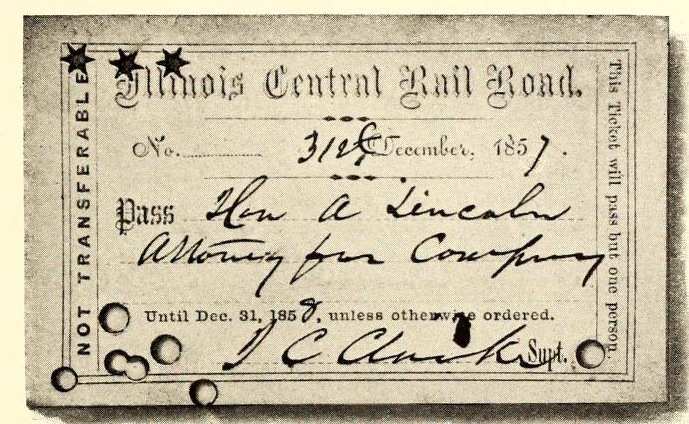 Illinois Central Rail Road.
No. December, 1857.
Pass Hon A Lincoln
Attorney for Company
Until Dec. 31, 1858, unless otherwise ordered.
J C Clarke Supt.
NOT TRANSFERABLE
This Ticket will pass but one person.